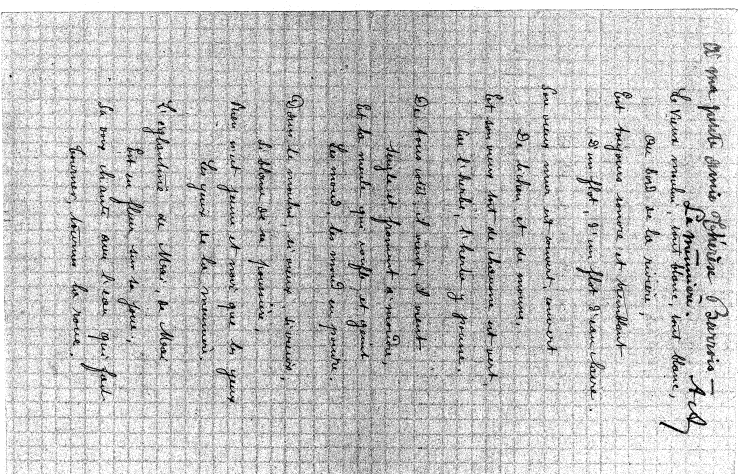 À ma petite amie Thérèse Burrois —
La meunière. A A
Le vieux moulin, tout blanc, tout blanc,
Au bord de la rivière,
Est toujours sonore et tremblant
D'un flot, d'un flot d'eau claire.
Son vieux mur est couvert, couvert
De lichen et de mousse,
Est son vieux toit de chaume est vert,
Car l'herbe, l'herbe y pousse.
De tous côtés il vient, il vient
Seigle et froment à moudre,
Et la meule qui ronfle et geint
Les moud, les moud en poudre.
Dans le moulin, si vieux, si vieux,
Si blanc de sa poussière,
Rien n'est jeune et noir que les yeux
Les yeux de la meunière.
L'églantine de Mai, de Mai
Est en fleur sur sa joue,
Sa voix chante avec l'eau qui fait
Tourner, tourner la roue.